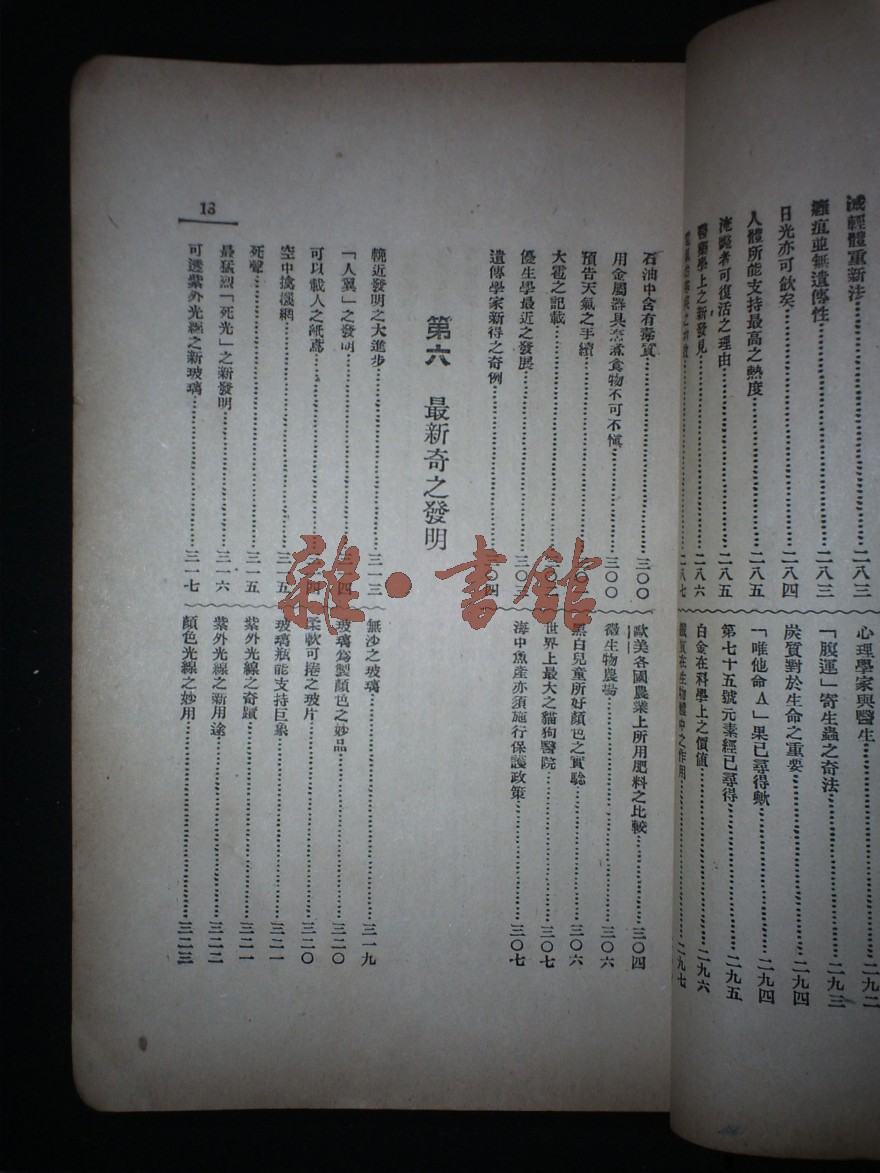 減輕體重新法…………二八三
瘧疽並無遺傳性…………二八三
日光亦可飲矣…………二八四
人體所能支持最高之熱度…………二八五
淹斃者可復活之理由…………二八五
醫藥學上之新發見…………二八六
二八七
心理學家與醫生…………二九二
「腹運」寄生蟲之奇法…………二九三
炭質對於生命之重要…………二九四
「唯他命A」果已尋得歟…………二九四
第七十五號元素經已尋得…………二九五
白金在科學上之價值…………二九六
質在生物體中之作用…………二九七
石油中含有毒質…………三〇〇
用金屬器具烹煮食物不可不愼…………三〇〇
預告天氣之手續
大雹之記載
優生學最近之發展…………三〇三
遺傳學家新得之奇例…………三〇四
歐美各國農業上所用肥料之比較…………三〇四
微生物農場…………三〇六
黑白兒童所好顏色之實驗…………三〇六
世界上最大之貓狗醫院…………三〇七
海中魚產亦須施行保護政策…………三〇七
第六 最新奇之發明
輓近發明之大進步…………三一三
「人翼」之發明…………三一四
可以載人之紙鳶…………三一四
空中擒漢網…………三一五
死聲…………三一五
最猛烈「死光」之新發明…………三一六
可透紫外光線之新玻璃…………三一七
無沙之玻璃…………三一九
玻璃爲製顏色之妙品…………三二〇
柔軟可捲之玻片…………三二〇
玻璃瓶能支持巨象…………三二一
紫外光線之奇蹟…………三二一
紫外光線之新用途…………三二二
顏色光線之妙用…………三二三
13
雜·書館